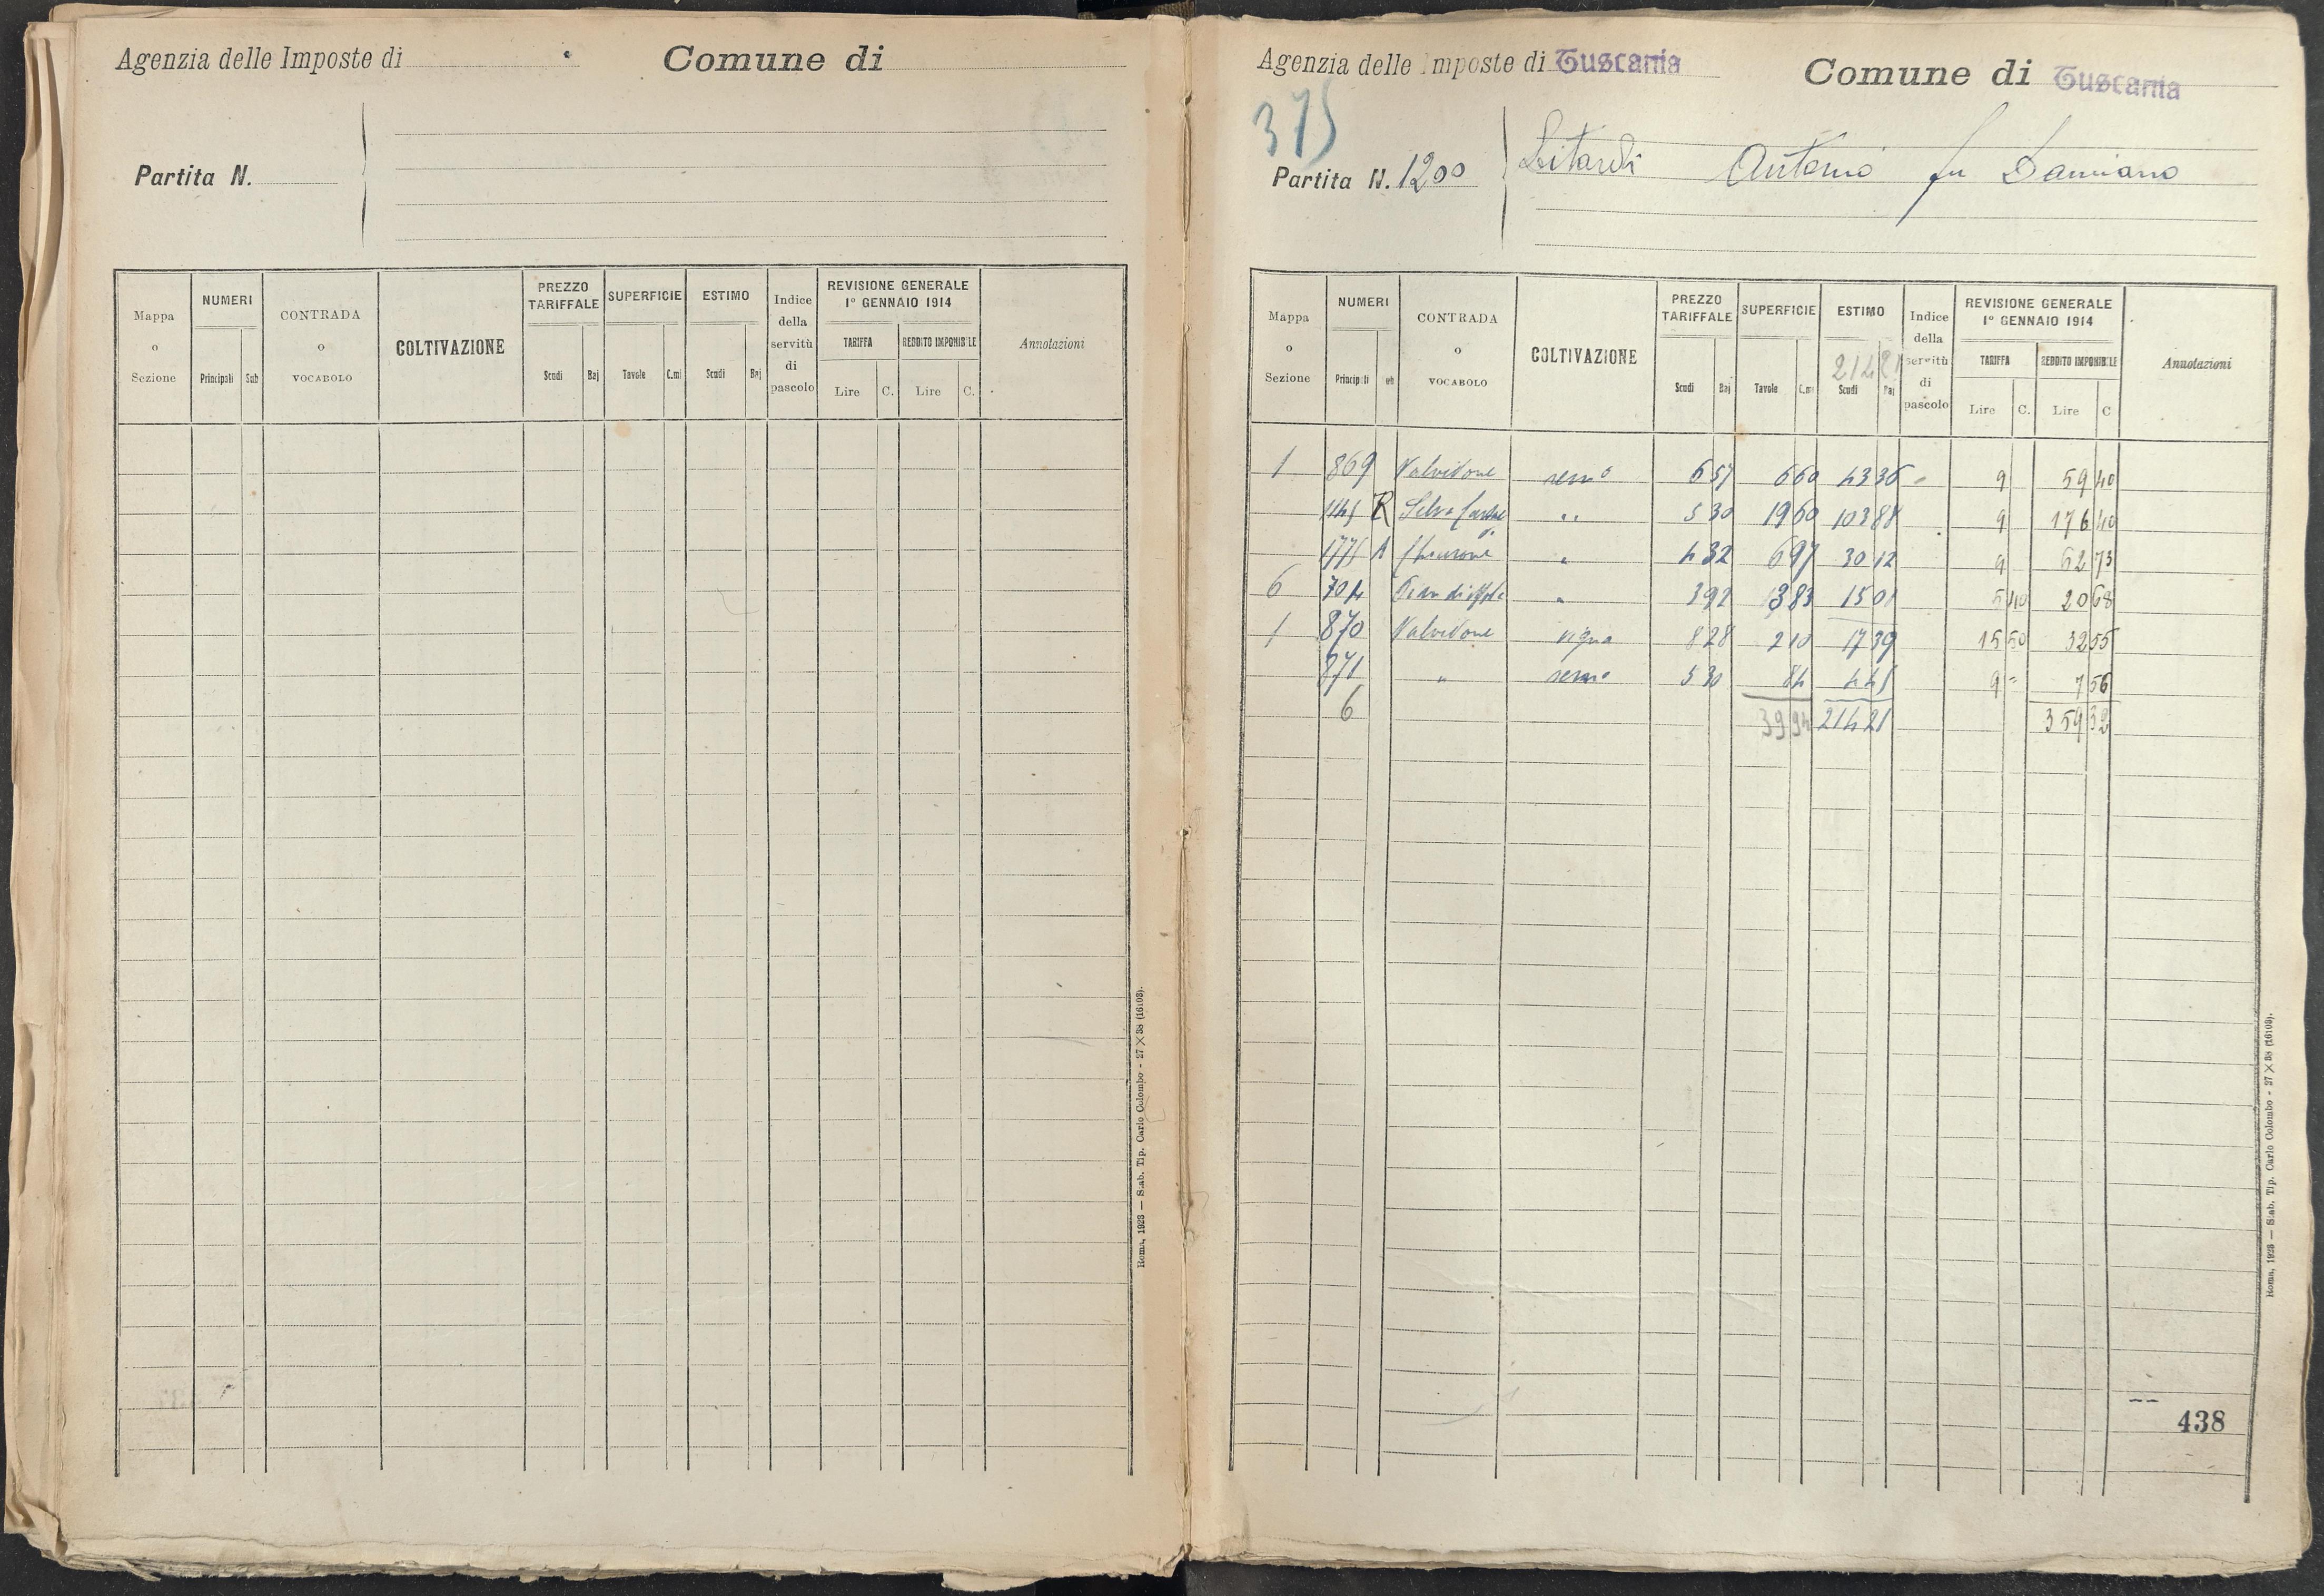 Agenzia delle Imposte di
Comune di
Partita N.
Mappa o Sezione
NUMERI
Principali Sub
CONTRADA o VOCABOLO
COLTIVAZIONE
PREZZO TARIFFALE
Scudi Baj
SUPERFICIE
Tavole C.mi
ESTIMO
Scudi Baj
Indice della servitù di pascolo
REVISIONE GENERALE
1° GENNAIO 1914
TARIFFA
Lire C.
REDDITO IMPONIBILE
Lire C.
Annotazioni
Roma, 1923 — Stab. Tip. Carlo Colombo - 27 × 38 (16103).
Agenzia delle Imposte di Tuscania
Comune di Tuscania
375
Partita N. 1200
Antonio fu Damiano
Mappa o Sezione
NUMERI
Principali
CONTRADA o VOCABOLO
COLTIVAZIONE
PREZZO TARIFFALE
Scudi Baj
SUPERFICIE
Tavole C.mi
ESTIMO
21421
Scudi Baj
Indice della servitù di pascolo
REVISIONE GENERALE
1° GENNAIO 1914
TARIFFA
Lire C.
REDDITO IMPONIBILE
Lire C
Annotazioni
1 869 Valvidone semo 6 57 6 60 43 36 9 59 40
R " 5 30 19 60 103 88 9 176 40
" 4 32 6 97 30 12 9 62 73
6 704 " 3 92 3 83 15 01 5 40 20 68
1 870 Valvidone vigna 8 28 2 10 17 39 15 50 32 55
871 " semo 5 30 84 4 45 9 7 56
6 39 94 214 21 359 32
438
Roma, 1923 — Stab. Tip. Carlo Colombo - 27 × 38 (16103).